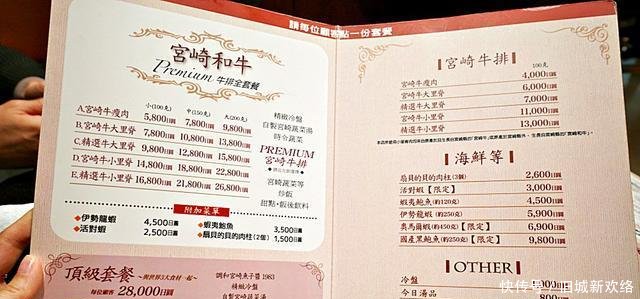 請每位顧客點一份套餐
宮崎和牛
Premium 牛排全套餐
小(100克) 中(150克) 大(200克)
A.宮崎牛瘦肉 5,800日圓 7,800日圓 9,800日圓
B.宮崎牛大里脊 7,800日圓 10,800日圓 13,800日圓
C.精選牛大里脊 9,800日圓 12,800日圓 15,800日圓
D.宮崎牛小里脊 14,800日圓 18,800日圓 22,800日圓
E.精選牛小里脊 16,800日圓 21,800日圓 26,800日圓
精緻冷盤
自製宮崎蔬菜湯
時令蔬菜
PREMIUM
宮崎牛排
宮崎蔬菜等
炒飯
甜點・飯後飲料
附加菜單
伊勢龍蝦 4,500日圓
活對蝦 2,500日圓
蝦夷鮑魚 3,500日圓
扇貝的貝的肉柱(2個) 1,500日圓
頂級套餐
~與世界3大食材一起~
每位顧客 28,000日圓
調和宮崎魚子醬 1983
精緻冷盤
自製宮崎蔬菜湯
宮崎牛排
100克
宮崎牛瘦肉 4,000日圓
宮崎牛大里脊 6,000日圓
精選牛大里脊 7,000日圓
宮崎牛小里脊 11,000日圓
精選牛小里脊 13,000日圓
海鮮等
扇貝的貝的肉柱(3個) 2,600日圓
活對蝦【限定】 3,000日圓
蝦夷鮑魚(約120克) 4,500日圓
伊勢龍蝦(約250克) 5,900日圓
奧馬爾蝦(約450克)【限定】 6,900日圓
國產黑鮑魚(約250克)【限定】 9,800日圓
OTHER
冷盤
今日湯品
快传号/旧城新欢络